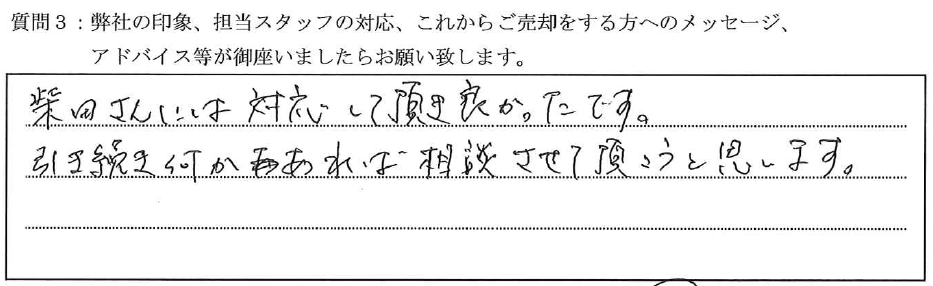 質問3:弊社の印象、担当スタッフの対応、これからご売却をする方へのメッセージ、
アドバイス等が御座いましたらお願い致します。
柴田さんには対応して頂き良かったです。
引き続き何かあれば相談させて頂こうと思います。